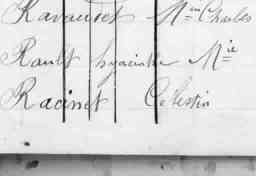 Ravaudet Min Charles
Rault hyacinthe Mie
Racinet Célestin